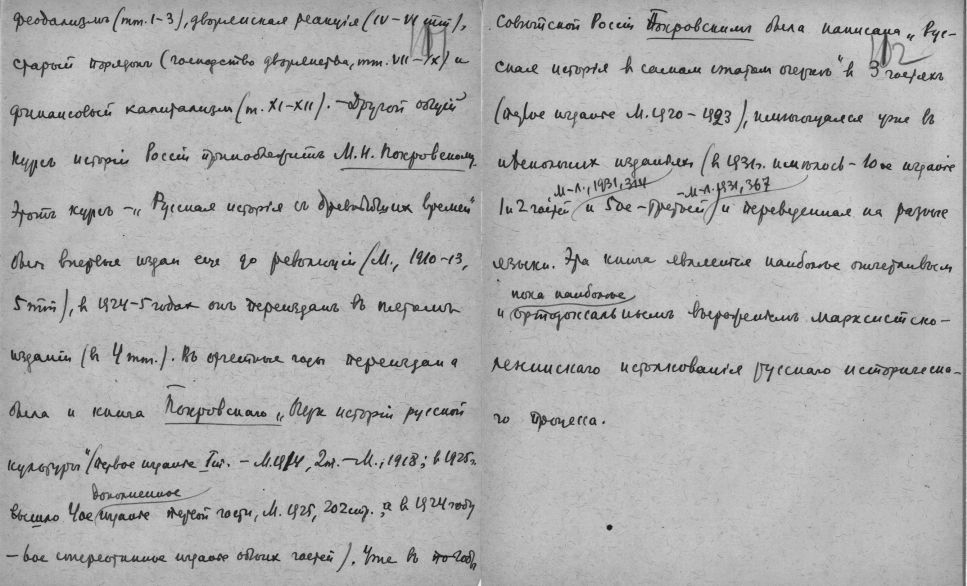 феодализмъ (тт. 1-3), дворянская реакція (IV-VI тт),
старый порядокъ (господство дворянства, тт. VII-X) и
финансовый капитализмъ (т. XI-XII). - Другой общій
курсъ исторіи Россіи принадлежитъ М.Н. Покровскому.
Этотъ курсъ - „Русская исторія съ древнѣйшихъ временъ"
былъ впервые изданъ еще до революціи (М., 1910-13,
5 тт), въ 1924-5 годахъ онъ переизданъ въ
изданіи (въ 4 тт.). Въ годы переиздана
была и книга Покровскаго „Очеркъ исторіи русской
культуры" (первое изданіе I т. - М. 1914, 2 т. - М., 1918; въ 1925 г.
дополненное
вышло 4ое изданіе первой части, М. 1925, 202 стр., а въ 1924 году
- вое стереотипное изданіе обѣихъ частей). Уже въ годы
Совѣтской Россіи Покровскимъ была написана „Рус-
ская исторія въ самомъ сжатомъ очеркѣ" въ 3 частяхъ
(первое изданіе М. 1920 - 1923), имѣющаяся уже въ
нѣсколькихъ изданіяхъ (въ 1931 г. имѣлось - 10ое изданіе
М-Л., 1931, 314 - М-Л. 1931, 367
1 и 2 частей и 5ое - третьей) и переведенная на разные
языки. Эта книга является наиболѣе отчетливымъ
пока наиболѣе
и ортодоксальнымъ выраженіемъ марксистско-
ленинскаго истолкованія русскаго историческа-
го процесса.